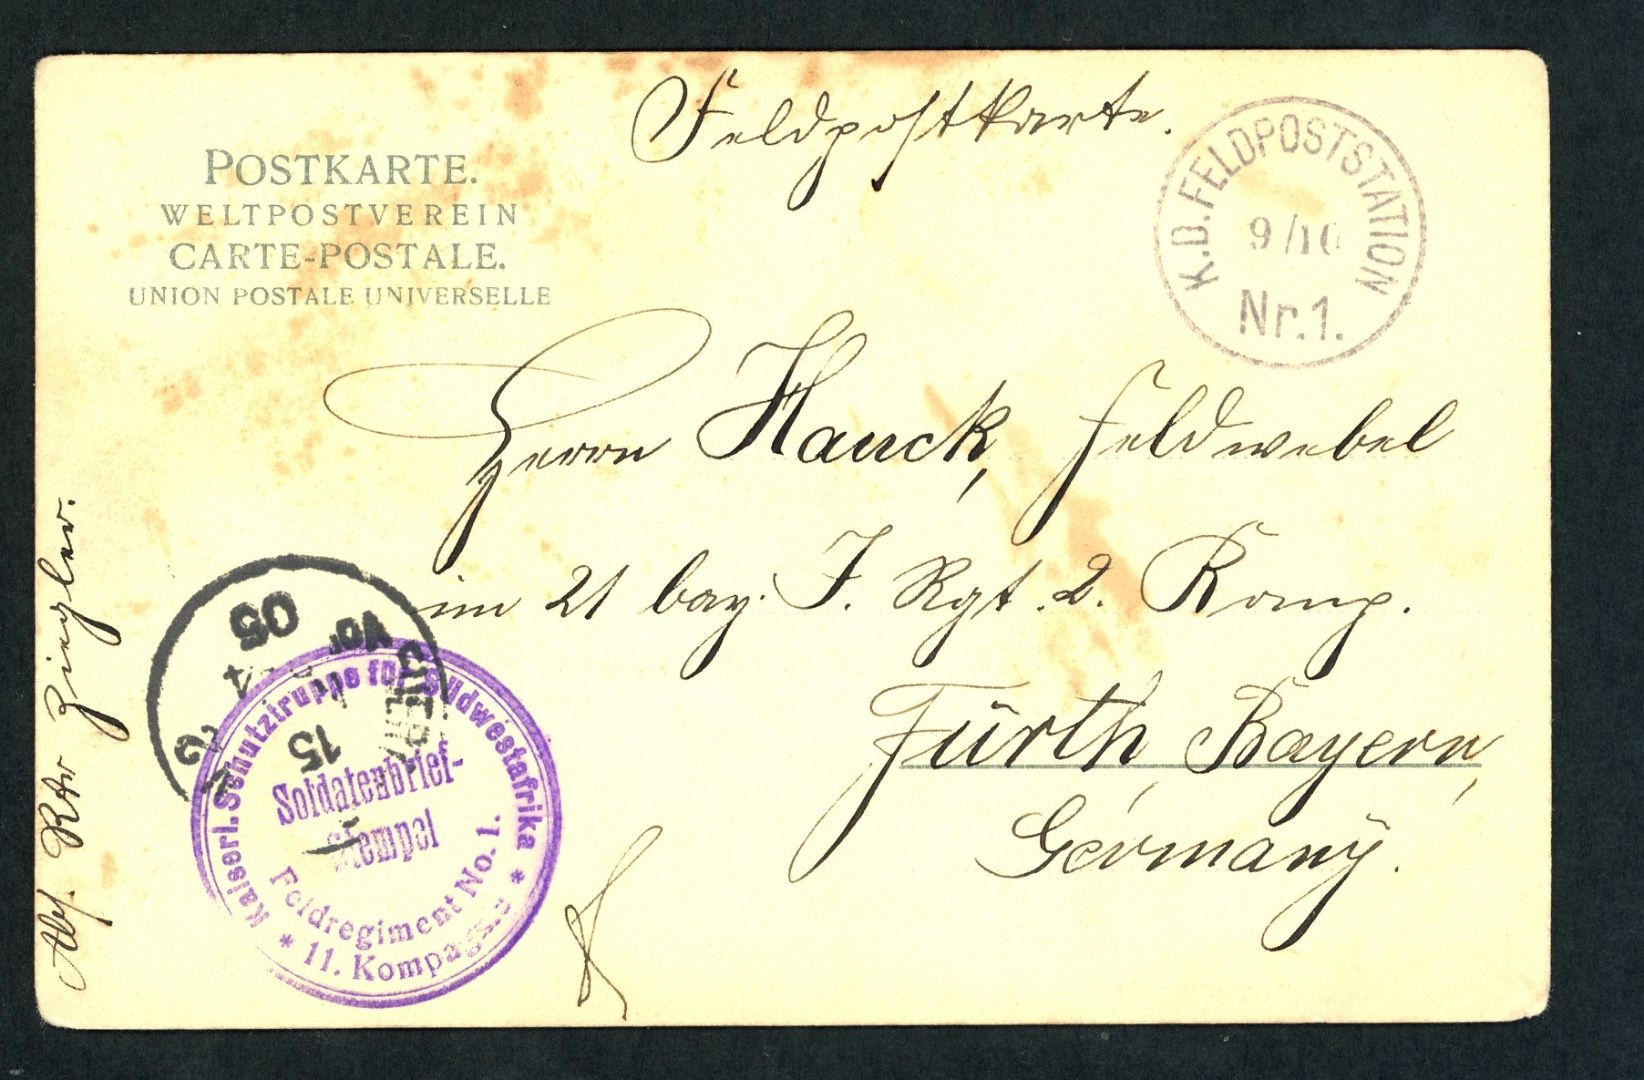 Feldpostkarte.
POSTKARTE.
WELTPOSTVEREIN
CARTE-POSTALE.
UNION POSTALE UNIVERSELLE
K.D. FELDPOSTSTATION
9/10
Nr. 1.
Herrn Hauck, Feldwebel
im 21 bay. I. Rgt. 2. Komp.
Fürth, Bayern,
Germany.
Abs. Rtr Ziegler.
Kaiserl. Schutztruppe für Südwestafrika
Soldatenbrief-
Stempel
Feldregiment No. 1.
* 11. Kompagnie *
05
15